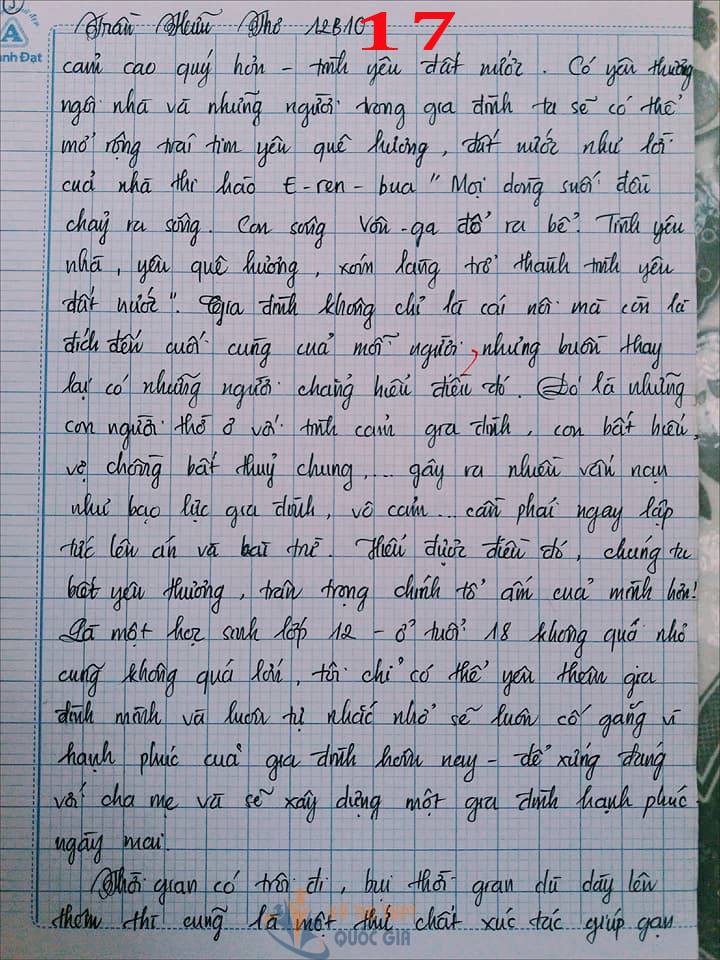 Trần Hữu Thơ 12B10
17
A
nh Đạt
cảm cao quý hơn - tình yêu đất nước. Có yêu thương
ngôi nhà và những người trong gia đình ta sẽ có thể
mở rộng trái tim yêu quê hương, đất nước như lời
của nhà thi hào E-ren-bua "Mọi dòng suối đều
chảy ra sông. Con sông Vôn-ga đổ ra bể. Tình yêu
nhà, yêu quê hương, xóm làng trở thành tình yêu
đất nước". Gia đình không chỉ là cái nôi mà còn là
đích đến cuối cùng của mỗi người, nhưng buồn thay
lại có những người chẳng hiểu điều đó. Đó là những
con người thờ ơ với tình cảm gia đình, con bất hiếu,
vợ chồng bất thuỷ chung,... gây ra nhiều vấn nạn
như bạo lực gia đình, vô cảm... cần phải ngay lập
tức lên án và bài trừ. Hiểu được điều đó, chúng ta
biết yêu thương, trân trọng chính tổ ấm của mình hơn!
Là một học sinh lớp 12 - ở tuổi 18 không quá nhỏ
cũng không quá lớn, tôi chỉ có thể yêu thêm gia
đình mình và luôn tự nhắc nhở sẽ luôn cố gắng vì
hạnh phúc của gia đình hôm nay - để xứng đáng
với cha mẹ và sẽ xây dựng một gia đình hạnh phúc
ngày mai.
Thời gian có trôi đi, bụi thời gian dù dày lên
thêm thì cũng là một thứ chất xúc tác giúp gạn
QUỐC GIA